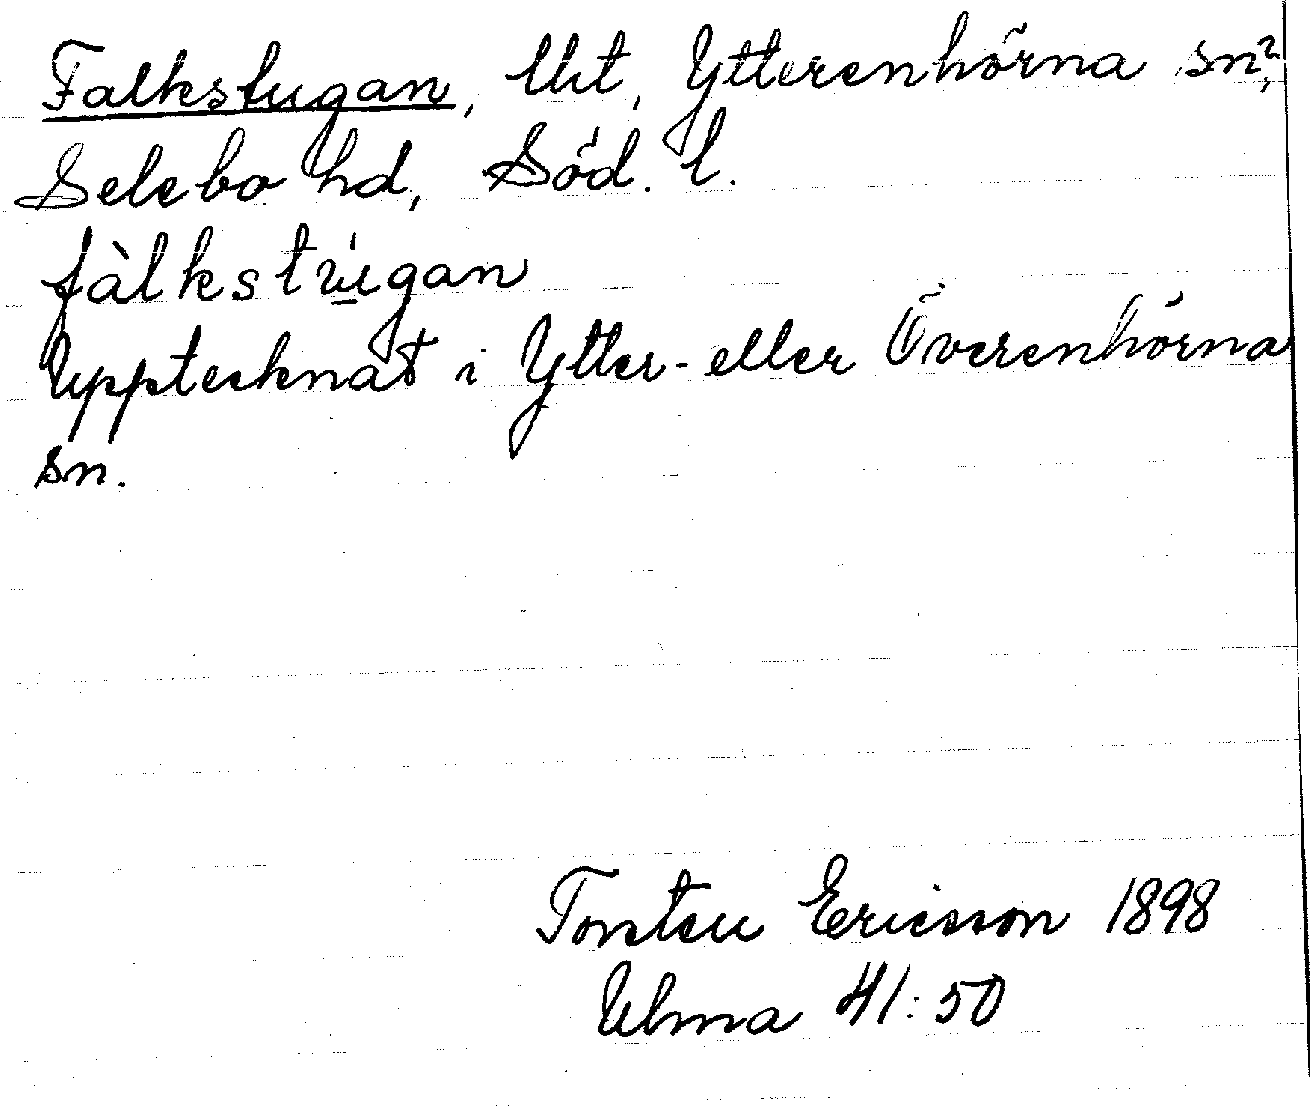 Falkstugan, Utt, Ytterenhörna sn?,
Selebo hd, Söd. l.
fàlkstúgan
Upptecknat i Ytter- eller Överenhörna
sn.
Torsten Ericsson 1898
Ulma 41:50